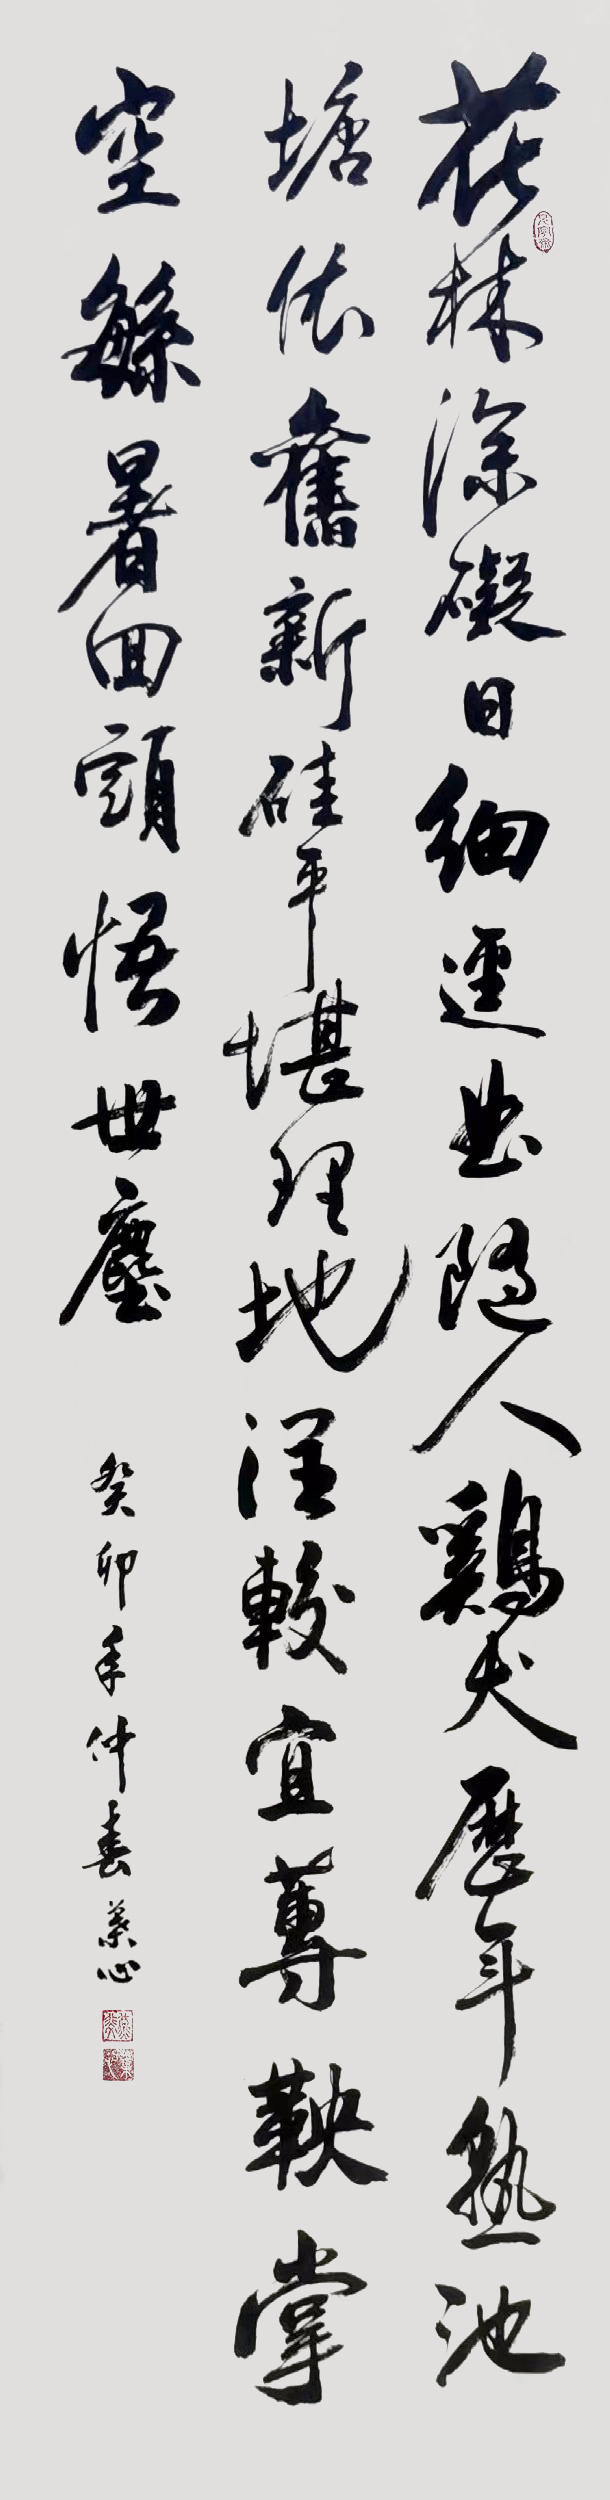 花林深礙日細逕曲隨人鷄犬歷年熟池
塘依舊新硅平堪理地較宜蓴鞅掌
空緐暑回頭悟世塵
癸卯年仲春心